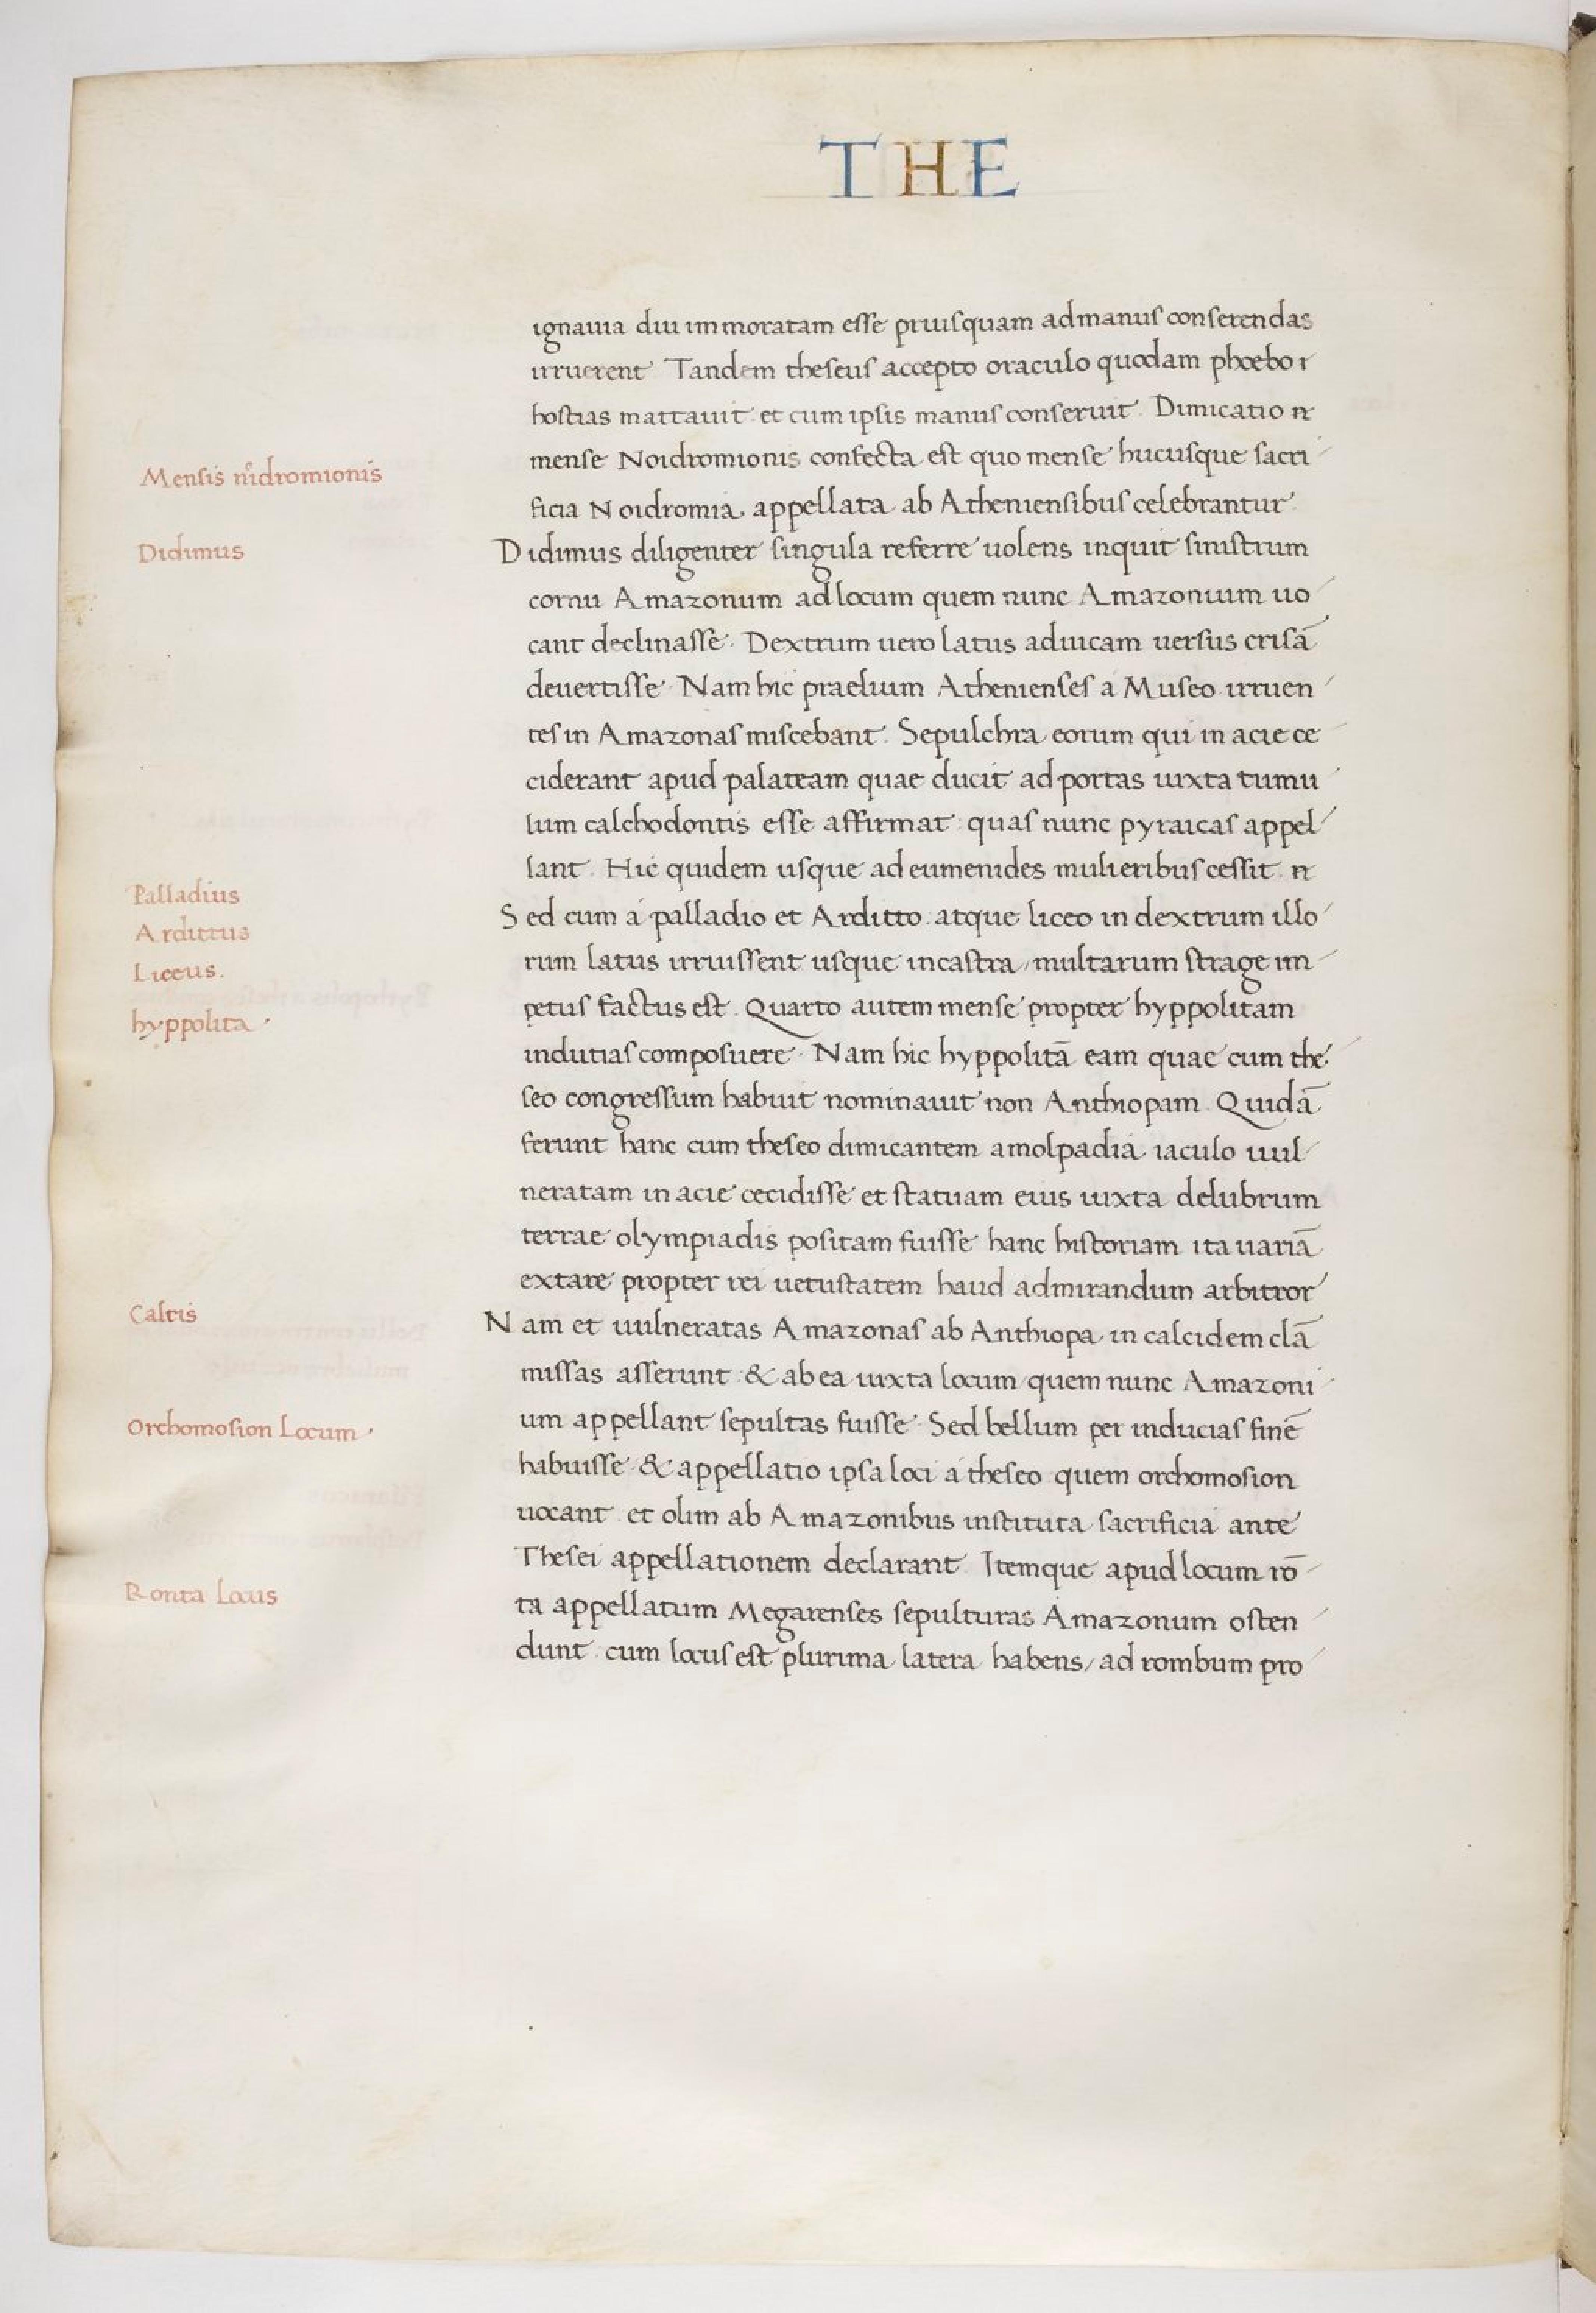 THE
ignauia diu immoratam esse priusquam ad manus conserendas
irruerent Tandem theseus accepto oraculo quodam phoebo
hostias mattauit et cum ipsis manus conseruit. Dimicatio
Mensis nidromionis
mense Noidromionis confecta est quo mense hucusque sacri
ficia Noidromia appellata ab Atheniensibus celebrantur
Didimus
Didimus diligenter singula referre uolens inquit sinistrum
cornu Amazonum ad locum quem nunc Amazonium uo
cant declinasse. Dextrum uero latus aduicam uersus crisā
deuertisse. Nam hic praelium Athenienses a Museo irruen
tes in Amazonas miscebant. Sepulchra eorum qui in acie ce
ciderant apud palateam quae ducit ad portas iuxta tumu
lum calchodontis esse affirmat quas nunc pyraicas appel
lant. Hic quidem usque ad eumenides mulieribus cessit
Palladius
Sed cum á palladio et Arditto atque liceo in dextrum illo
Ardittus
Liceus.
rum latus irruissent usque in castra, multarum strage im
petus factus est. Quarto autem mense propter hyppolitam
hyppolita
indutias composuere. Nam hic hyppolitā eam quae cum the
seo congressum habuit nominauit non Anthiopam. Quidā
ferunt hanc cum theseo dimicantem a molpadia iaculo uul
neratam in acie cecidisse et statuam eius iuxta delubrum
terrae olympiadis positam fuisse hanc historiam ita uariā
extare propter rei uetustatem haud admirandum arbitror
Calcis
Nam et uulneratas Amazonas ab Anthiopa in calcidem clā
missas asserunt & ab ea iuxta locum quem nunc Amazoni
um appellant sepultas fuisse. Sed bellum per inducias finē
Orchomosion Locum
habuisse & appellatio ipsa loci á theseo quem orchomosion
uocant et olim ab Amazonibus instituta sacrificia ante
Thesei appellationem declarant. Itemque apud locum rō
Ronta Locus
ta appellatum Megarenses sepulturas Amazonum osten
dunt cum locus est plurima latera habens, ad rombum pro